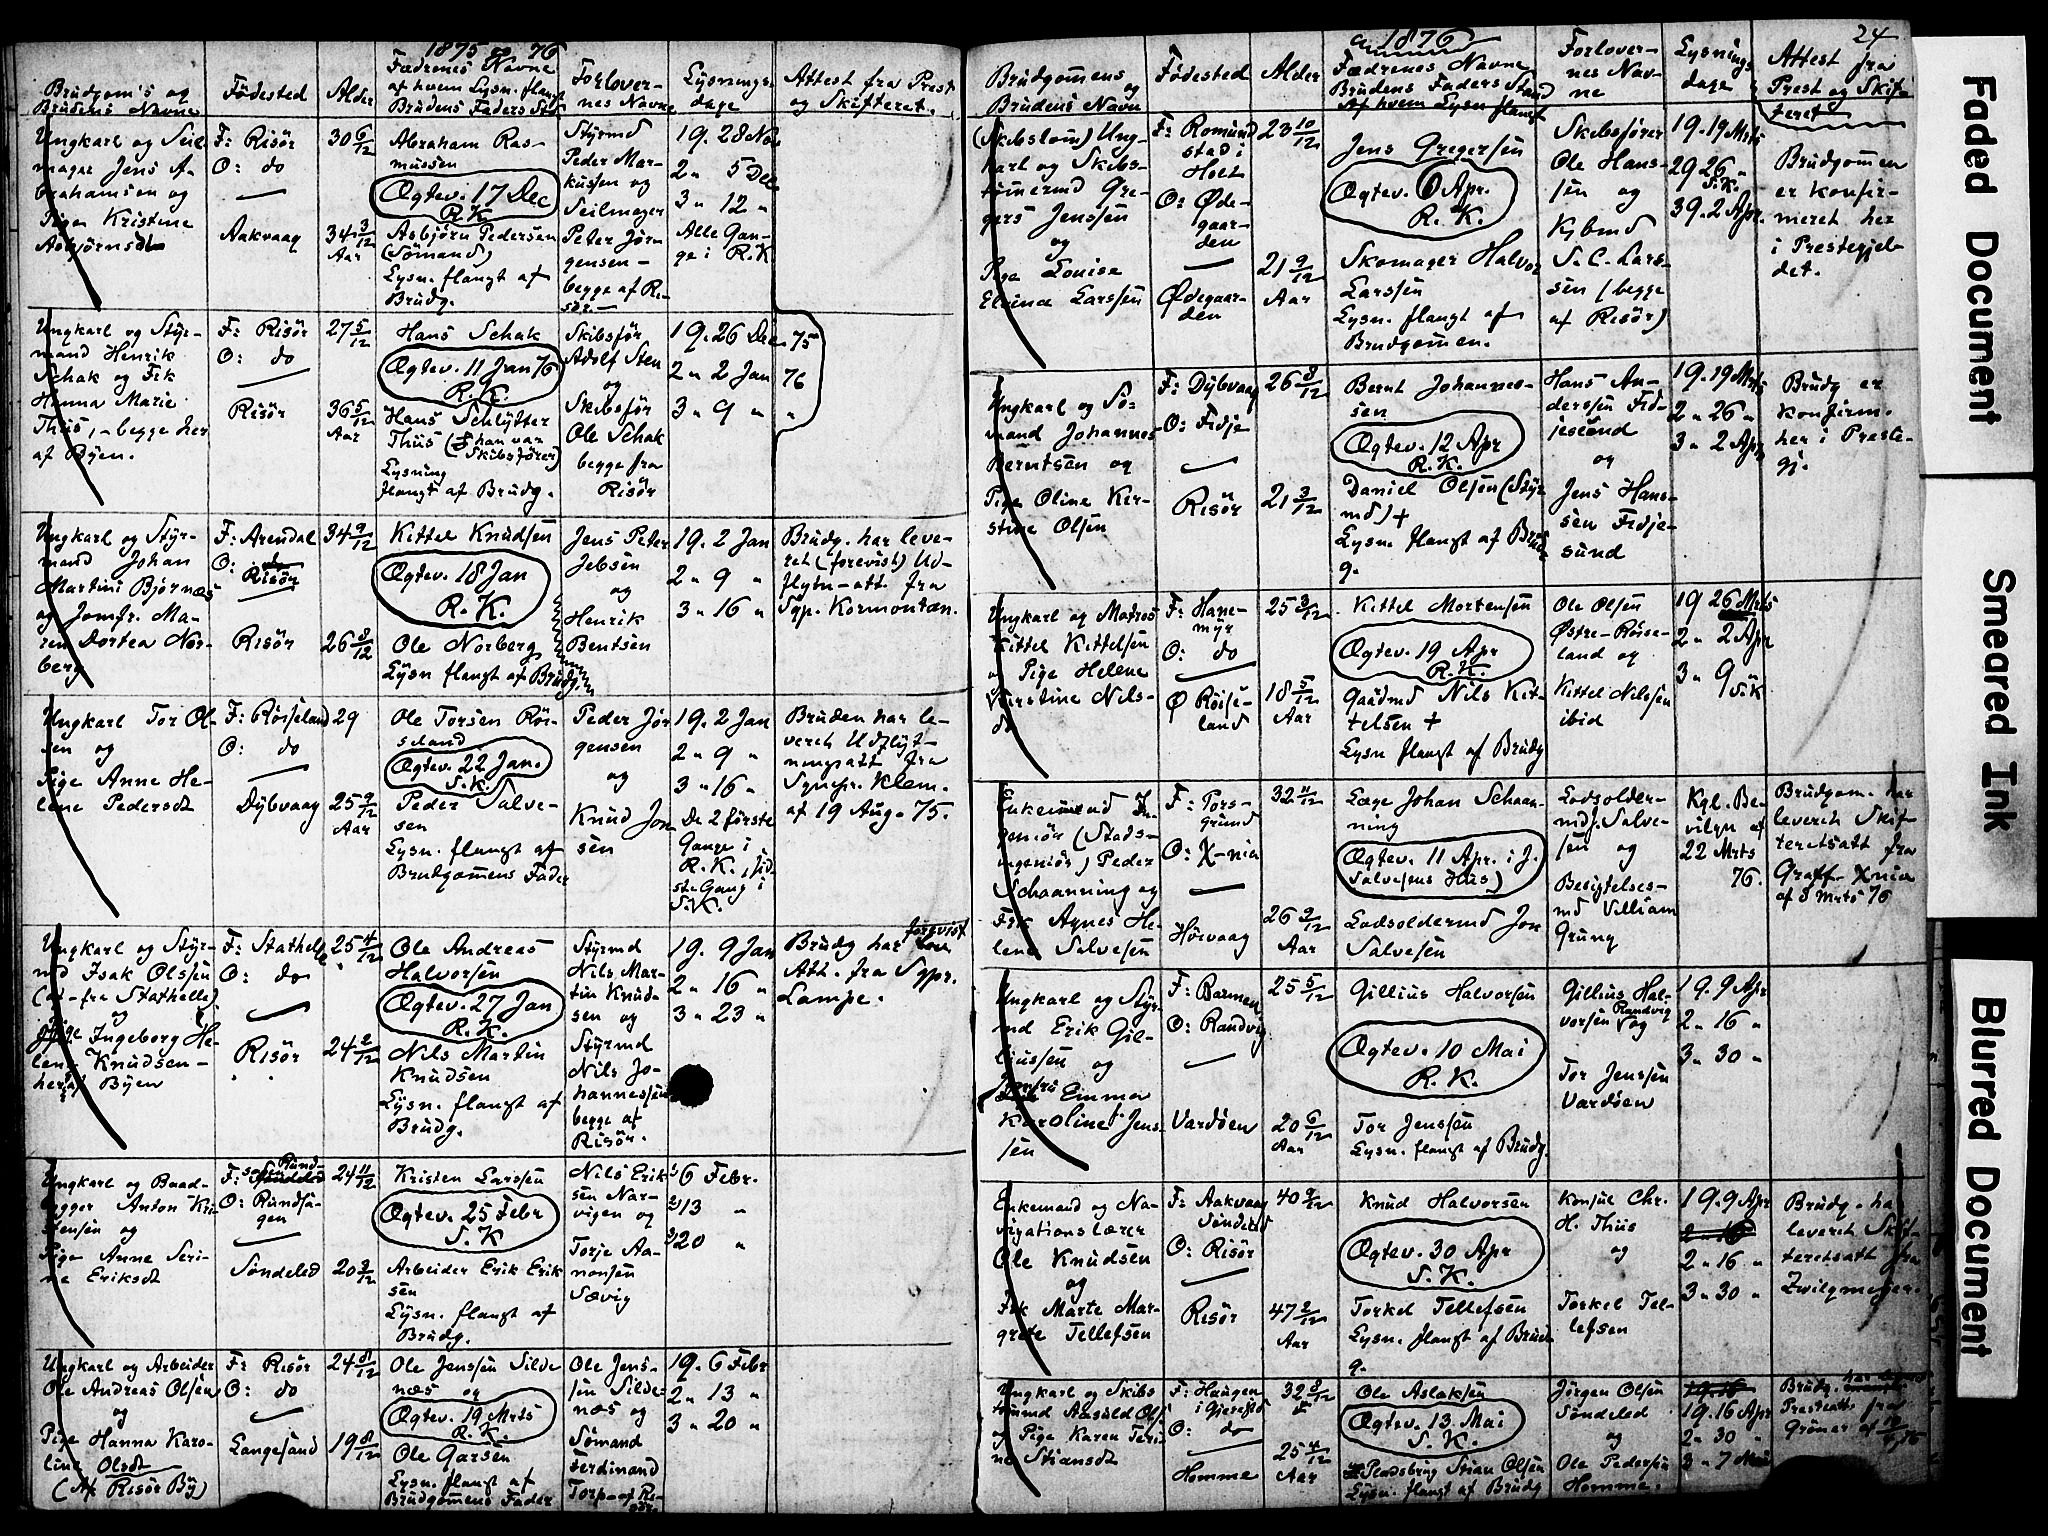 1875 og 76
Brudgom's og
Brudens Navne
Fødested
Alder
Fædrenes Navne
af hvem Lysn. flangt
Brudens Faders St
Forlover-
nes Navne
Lysnings-
dage
Attest fra Prest
og Skifteret.
Ungkarl og Seil-
mager Jens A-
brahamsen og
Pige Kristine
Asbjørnsdt
F: Risør
O: do
Aakvaag
30 6/12
34 3/12
Aar
Abraham Ras-
mussen
Ægtev. 17 Dec
R.K.
Asbjørn Pedersen
(Sømand)
Lysn. flangt af
Brudg.
Styrmd
Peder Mar-
kussen og
Seilmager
Peter Jør-
gensen -
begge af Ri-
sør -
19. 28 Nov
2 " 5 Dec
3 " 12 "
Alle Gan-
ge i R.K
Ungkarl og Styr-
mand Henrik
Schak og Frk
Hanna Marie
Thiis, - begge her
af Byen.
F: Risør
O: do
Risør
27 5/12
36 5/12
Aar
Hans Schak
Ægtev. 11 Jan 76
R.K.
Hans Schlytter
Thiis (han var
Skibsfører)
Lysning
flangt af Brudg.
Skibsfør
Adolf Sten
og
Skibsfør
Ole Schak
begge fra
Risør
19. 26 Dec 75
2 " 2 Jan 76
3 " 9 " "
Ungkarl og Styr-
mand Johan
Martini Bjørnæs
og Jomfr. Ma-
ren Dortea Nor-
berg
F: Arendal
O: do
Risør
Risør
34 9/12
26 8/12
Kittel Knudsen
Ægtev. 18 Jan
R.K.
Ole Norberg
Lysn flangt af Brudg.
Jens Peter
Jebsen
og
Henrik
Bentsen
19. 2 Jan
2 " 9 "
3 " 16 "
Brudg. har leve-
ret (forevist) Ud-
flytn-att fra
Sgp. Kormontan.
Ungkarl Tor Ol-
sen og
Pige Anne He-
lene Pedersdt
F: Røiseland
O: do
Dybvaag
29
25 9/12
Aar
Ole Torsen Røi-
seland
Ægtev. 22 Jan.
S.K.
Peder Salve-
sen
Lysn. flangt af
Brudgommens Fader
Peder Jør-
gensen
og
Knud Jon
sen
19. 2 Jan
2 " 9 "
3 " 16 "
De 2 første
Gange i
R.K., sid-
ste Gang i
S.K.
Bruden har le-
veret Udflyt-
ningsatt fra
Sgnpr. Klem.
af 19 Aug. 75.
Ungkarl og Styr-
md Isak Olsen
(at-fra Stathelle)
og
Pige Ingeborg He-
lene Knudsen -
her af Byen
F: Stathelle
O: do
Risør
25 4/12
24 2/12
Ole Andreas
Halvorsen
Ægtev. 27 Jan
R.K.
Nils Martin
Knudsen
Lysn. flangt af
Brudg.
Styrmd
Nils Mar-
tin Knud-
sen og
Styrmd
Nils Jo-
hannessen
begge af
Risør.
19. 9 Jan
2 " 16 "
3 " 23 "
Brudg har forevist
Att. fra Sgpr.
Lampe.
Ungkarl og Baad-
bygger Anton Kri-
stensen og
Pige Anne Seri-
ne Eriksdt
F: Søndeled
O: Rundsa-
gen
Søndeled
24 11/12
20 9/12
Kristen Larssen
Ægtev. 25 Febr
S.K
Arbeider Erik Erik
sen
Lysn. flangt af
Brudg.
Nils Erik
sen Nar-
vigen og
Torje Aa-
nonsen
Sævig
6 Febr.
13 "
20 "
Ungkarl og Arbeider
Ole Andreas Olsen
og
Pige Hanna Karo-
line Olsdt
(Af Risør By)
F: Risør
O: do
Langesund
24 8/12
19 8/12
Ole Jenssen Silde
næs og
Ægtev. 19 Mrts
R.K.
Ole Garsen
Lysn. flangt af
Brudgommens Fader
Ole Jens-
sen Silde-
næs og
Sømand
Ferdinand
Torp - af Ri-
sør.
19. 6 Febr
2 " 13 "
3 " 20 "
1876
24
Brudgommens og
Brudens Navn
Fødested
Alder
Fædrenes Navne
Brudens Faders Stand
Af hvem Lysn flangt
Forlover-
nes Nav-
ne
Lysnings
dage
Attest fra
Prest og Skif-
teret
(Skibstøm) Ung-
karl og Skibs-
tømermd Gre-
gers Jenssen
og
Pige Louise
Elvina Larssen
F: Romund
stad i
Holt
O: Øde-
gaar-
den
Ødegaar-
den
23 10/12
21 9/12
Aar
Jens Gregersen
Ægtev. 6 Apr.
R.K.
Skomager Halvor
Larssen
Lysn. flangt af
Brudgommen.
Skibsfører
Ole Hans-
sen og
Kjbmd
S.C. Lars-
sen (begge
af Risør)
19. 19 Mrts
29 26 "
S.K.
39. 2 Apr.
Brudgommen
er konfir-
meret her
i Prestegjel-
det.
Ungkarl og Sø-
mand Johannes
Berntsen og
Pige Oline Kir-
stine Olsen
F: Dybvaag
O: Fidje
Risør
26 8/12
21 3/12
Bernt Johannes-
sen
Ægtev. 12 Apr
R.K.
Daniel Olsen (Styr
md) +
Lysn. flangt af Brud
g.
Hans An-
derssen Fid-
jesund
og
Jens Hans-
sen Fidje-
sund
19. 19 Mrts
2 " 26 "
3 " 2 Apr
Brudg er
konfirm.
her i Preste-
gj.
Ungkarl og Matros
Kittel Kittelsen
og Pige Helene
Kirstine Nils-
dt
F: Hane-
myr
O: do
Ø Røise-
land
25 3/12
18 5/12
Aar
Kittel Mortensen
Ægtev. 19 Apr
R.K.
Gaardmd Nils Kit-
telsen +
Lysn flangt af Brudg
Ole Olsen
Østre-Røise-
land og
Kittel Nilssen
ibid
19 26 Mrts
2 " 2 Apr
3 " 9 S.K
Enkemand In-
geniør (Stads-
ingeniør) Peder
Schaanning og
Frk Agnes He-
lene Salvesen
F: Pors-
grund
O: X-nia
Høivaag
32 11/12
26 9/12
Aar
Læge Johan Schaan-
ning
Ægtev. 11 Apr. i J.
Salvesens Hus)
Lodsoldermd Jon
Salvesen
Lodsolder-
md J. Salve-
sen og
Besigtelses-
md Villiam
Grung
Kgl. Be-
vilgn af
22 Mrts
76.
Brudgom. har
leveret Skif-
teretsatt fra
Graff. Xnia
af 8 Mrts 76
Ungkarl og Styr-
md Erik Gil-
liussen
og
Emma
Karoline Jens-
sen
F: Barmen
O: Randvig
Vardøen
25 5/12
20 6/12
Aar
Gillius Halvorsen
Ægtev. 10 Mai
R.K.
Tor Jenssen
Lysn. flangt af Brudg.
Gillius Hal-
vorsen Randvig og
Tor Jenssen
Vardøen
19. 9 Apr
2 " 16 "
3 " 30 "
Enkemand og Na-
vigationslærer
Ole Knudsen
og
Frk Marte Mar-
grete Tellefsen
F: Aakvaag
Søndeled
O: Risør
Risør
40 9/12
47 2/12
Aar
Knud Halvorsen
Ægtev. 30 Apr
S.K.
Torkel Tellefsen
Lysn. flangt af Brud
g.
Konsul Chr.
H. Thiis
og
Torkel Tel-
lefsen
19. 9 Apr
2 " 16
2 " 16 "
3 " 30 "
Brudg. ha
leveret Skif-
teretsatt fra
Zwilgmeyer.
Ungkarl og Skibs
tømmd Aasuld Ols
og Pige Karen Teri-
ne Stiansdt
F: Haugen
i Gjerestad
O: do
Homme
32 8/12
25 4/12
Aar
Ole Aslaksen
Ægtev. 13 Mai
S.K.
Pladsbrug Stian Olsen
Lysn. flangt af Brudg
Jørgen Olsen
Søndeled
og
Ole Pedersen
Homme.
19. 16
19. 16 Apr
2 " 30 "
3 " 7 Mai
Brudg.
Presteatt fra
Grøner af
Faded Document
Smeared Ink
Blurred Document